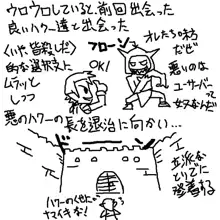 ウロウロしていると前回出会った
良いハワー達と出会った
〈いや、皆殺しだ〉
的な選択支に
ムラッと
しつつ
フロージュ
OK!
オレたちの味方
だぜ
悪いのは
ユーサーバー
って
奴なんだ
悪のハワーの長を退治に向かい…
立派な
とりでに
到着する
ハワーのくせに
ナマイキな!